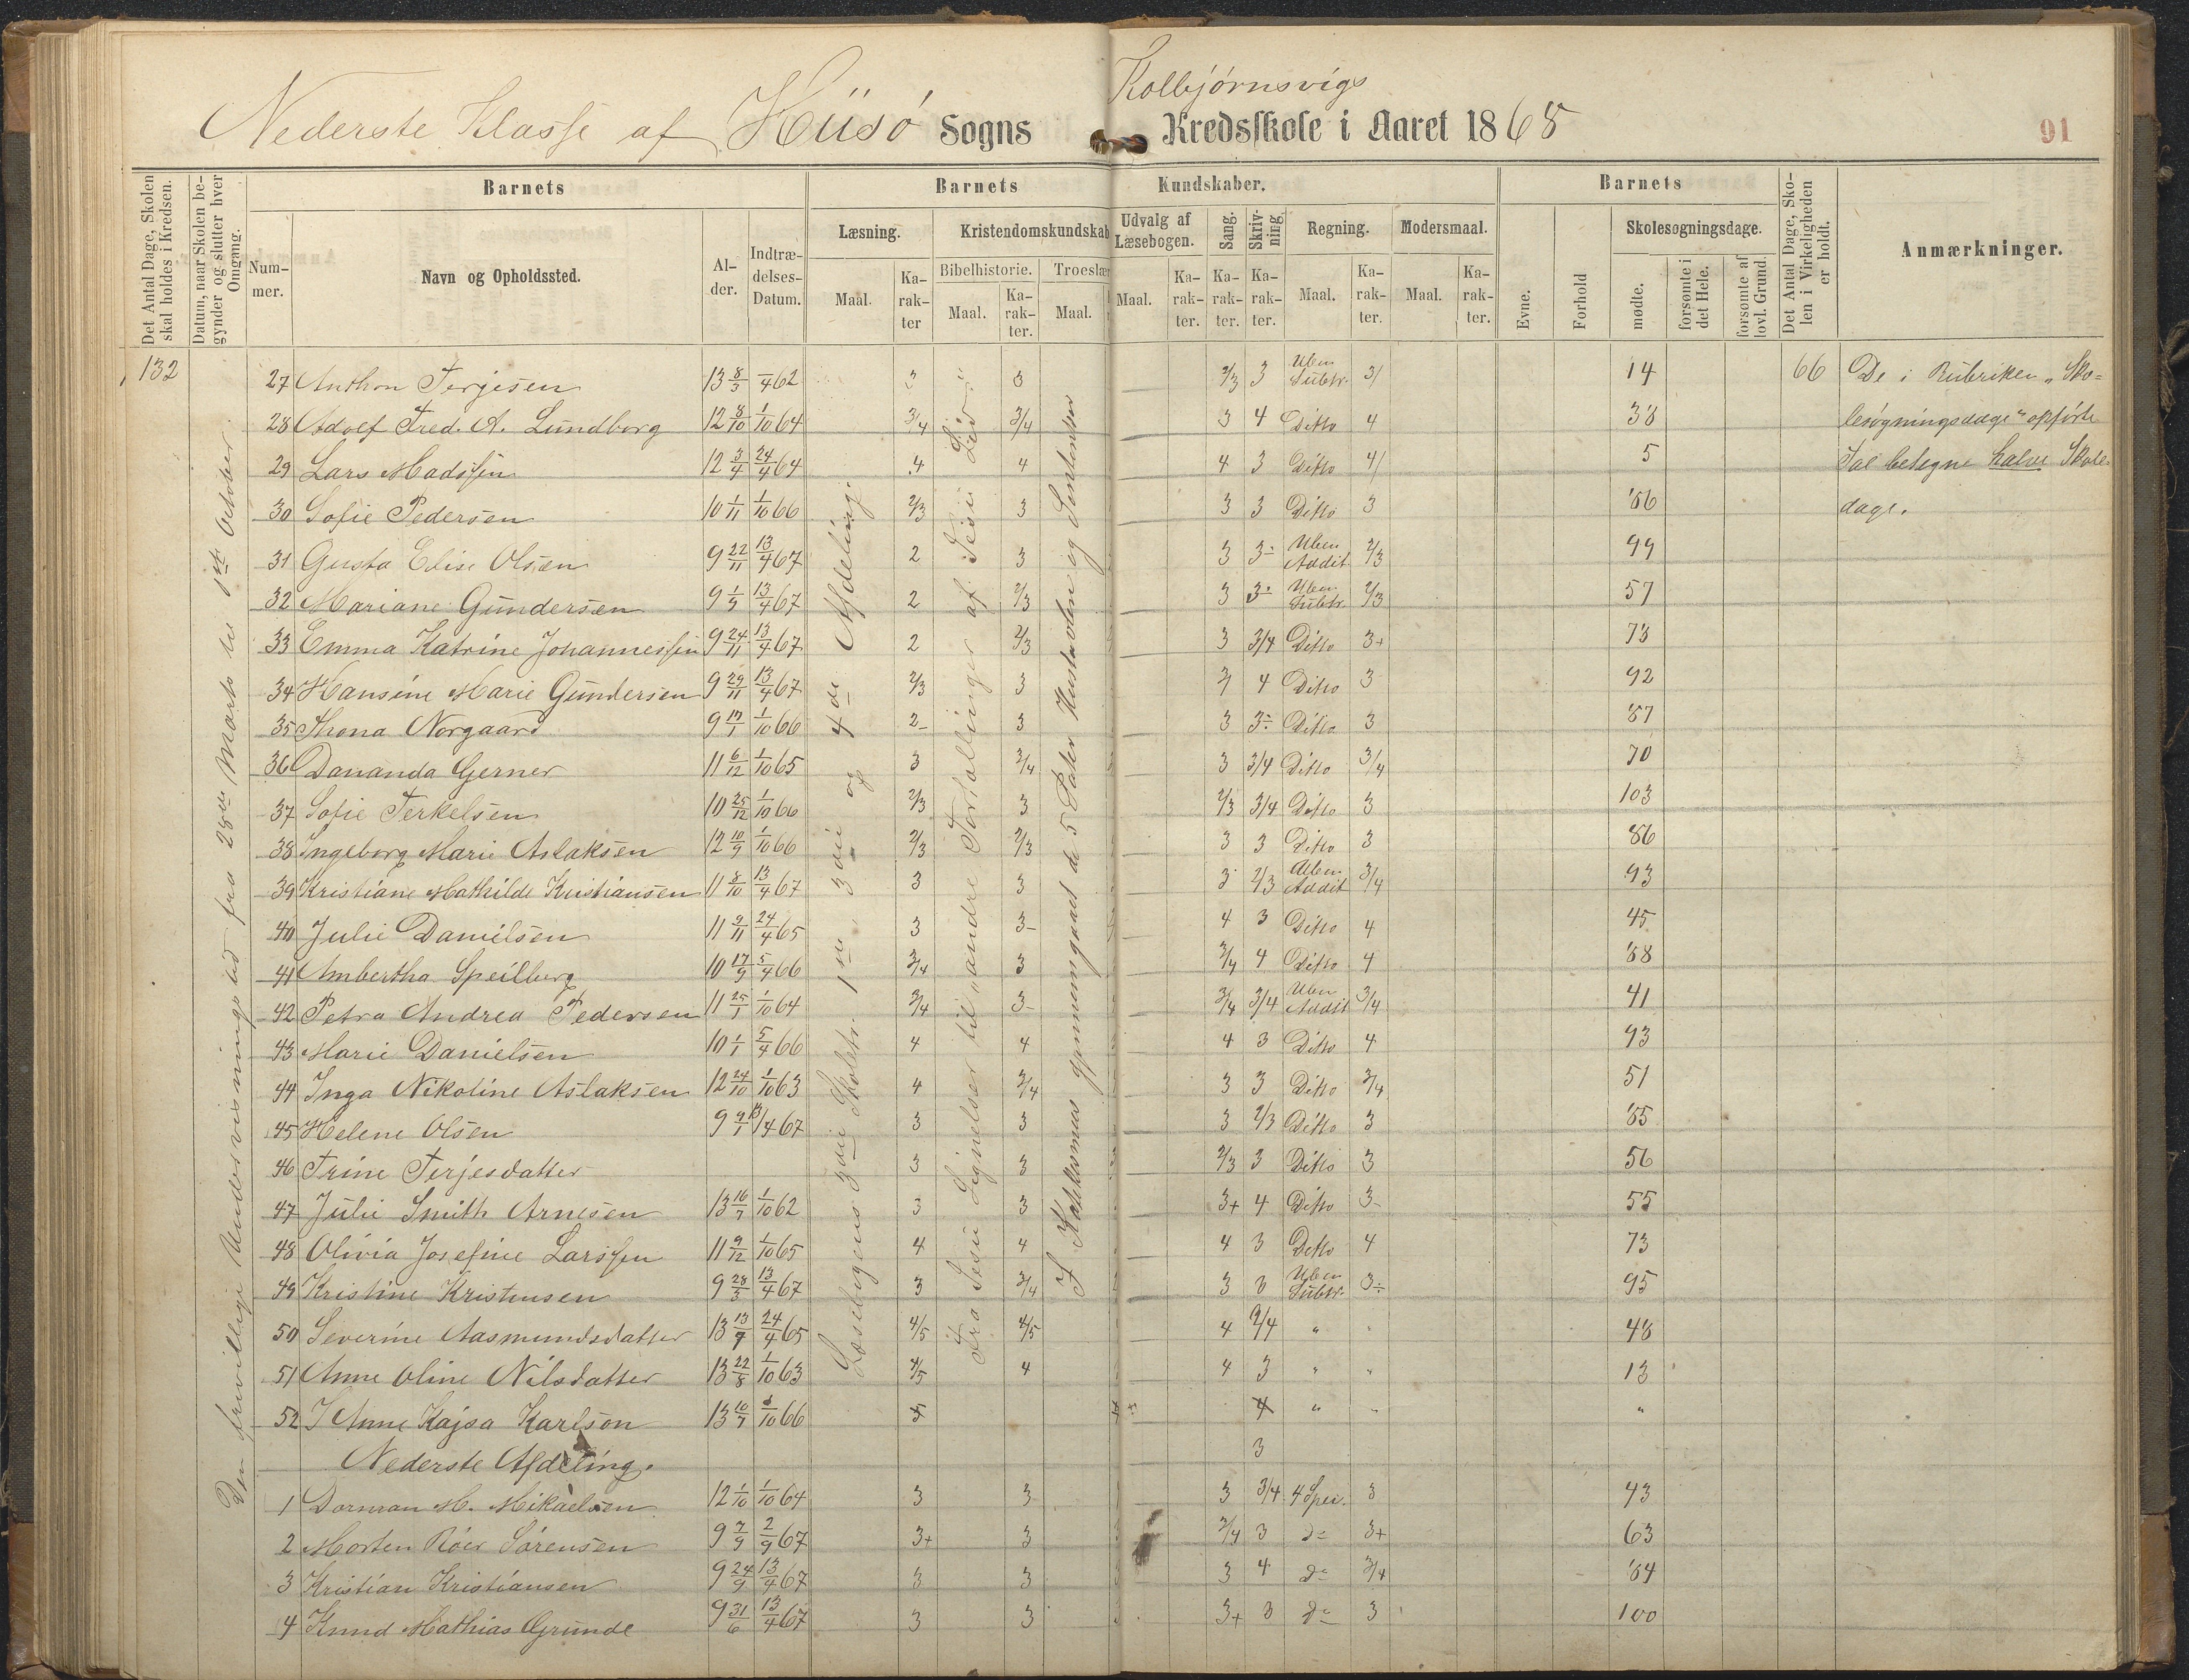 Kolbjørnsvigs
Nederste Klasse af Hiisø Sogns Kredsskole i Aaret 1868
91
Det Antal Dage, Skolen skal holdes i Kredsen.
Datum, naar Skolen begynder og slutter hver Omgang.
Barnets
Num-mer.
Navn og Opholdssted.
Al-der.
Indtræ-delses-Datum.
Barnets Kundskaber.
Læsning.
Maal.
Ka-rak-ter
Kristendomskundskab
Bibelhistorie.
Maal.
Ka-rak-ter.
Troeslær
Maal.
Udvalg af Læsebogen.
Maal.
Ka-rak-ter.
Sang.
Ka-rak-ter.
Skriv-ning.
Ka-rak-ter.
Regning.
Maal.
Ka-rak-ter.
Modersmaal.
Maal.
Ka-rak-ter.
Barnets
Evne.
Forhold
Skolesøgningsdage.
mødte.
forsømte i det Hele.
forsømte af lovl. Grund.
Det Antal Dage, Sko-len i Virkeligheden er holdt.
Anmærkninger.
132
Den frivillige Undervisningstid fra 28de Marts til 1ste October
Læsebogens 3die Skoletr. 1ste, 3die og 4de Afdeling.
Fra Jesu Lignelser til "andre Fortællinger af Jesu Liv"
I Katekismus gjennemgaaet de 5 Parter Hustavlen og Sentenser
27 Anthon Terjesen 13 8/3 –/4 62 3 3 2/3 3 Uben Subtr. 3/ 14 66 De i Rubriken "Sko-
28 Adolf Fred. A. Lundborg 12 8/10 1/10 64 3/4 3/4 3 4 Ditto 4 38 lesøgningsdage" opførte
29 Lars Madssen 12 3/4 24/4 64 4 4 4 3 Ditto 4/ 5 Tal betegne halve Skole-
30 Sofie Pedersen 10 1/11 1/10 66 2/3 3 3 3 Ditto 3 86 dage.
31 Gusta Elise Olsen 9 22/11 13/4 67 2 3 3 3- Uben Addit 2/3 99
32 Mariane Gundersen 9 1/9 13/4 67 2 2/3 3 3- Uben Subtr. 2/3 57
33 Emma Katrine Johannessen 9 24/11 13/4 67 2 2/3 3 3/4 Ditto 3+ 78
34 Hansine Marie Gundersen 9 29/11 13/4 67 2/3 3 3/ 4 Ditto 3 92
35 Thona Norgaard 9 17/1 1/10 66 2- 3 3 3- Ditto 3 87
36 Dananda Gerner 11 6/12 1/10 65 3 3/4 3 3/4 Ditto 3/4 70
37 Sofie Terkelsen 10 25/12 1/10 66 2/3 3 2/3 3/4 Ditto 3 103
38 Ingeborg Marie Aslaksen 12 10/9 1/10 66 2/3 2/3 3 3 Ditto 3 86
39 Kristiane Mathilde Kristiansen 11 8/10 13/4 67 3 3 3 2/3 Uben Addit 3/4 93
40 Julie Danielsen 11 9/11 24/4 65 3 3- 4 3 Ditto 4 45
41 Ambertha Speilberg 10 17/9 5/4 66 3/4 3 3/4 4 Ditto 4 88
42 Petra Andrea Pedersen 11 25/1 1/10 64 3/4 3- 3/4 3/4 Uben Addit 3/4 41
43 Marie Danielsen 10 1/1 5/4 66 4 4 4 3 Ditto 4 93
44 Inga Nikoline Aslaksen 12 24/10 1/10 63 4 3/4 3 3 Ditto 3/4 51
45 Helene Olsen 9 9/1 13/4 67 3 3 3 2/3 Ditto 3 85
46 Trine Terjesdatter 3 3 2/3 3 Ditto 3 56
47 Julie Smith Arnesen 13 16/7 1/10 62 3 3 3+ 4 Ditto 3- 55
48 Olivia Josefine Larssen 11 9/12 1/10 65 4 4 4 3 Ditto 4 73
49 Kristine Kristensen 9 28/3 13/4 67 3 3/4 3 3 Uben Subtr. 3- 95
50 Severine Aasmundsdatter 13 13/9 24/4 65 4/5 4/5 4 3/4 " 48
51 Anne Oline Nilsdatter 13 22/8 1/10 63 4/5 4 4 3 " " 13
52 Anne Kajsa Karlson 13 10/7 1/10 66 3 4 " " "
Nederste Afdeling. 3
1 Dorman M. Mikaelsen 12 1/10 1/10 64 3 3 3 3/4 4 Spec. 3 43
2 Morten Röer Sörensen 9 7/9 2/9 67 3+ 3 3/4 3 do 3+ 63
3 Kristian Kristiansen 9 24/9 13/4 67 3 3 3 4 do 3/4 84
4 Knud Mathias Grunde 9 31/6 13/4 67 3 3 3+ 3 do 3 100